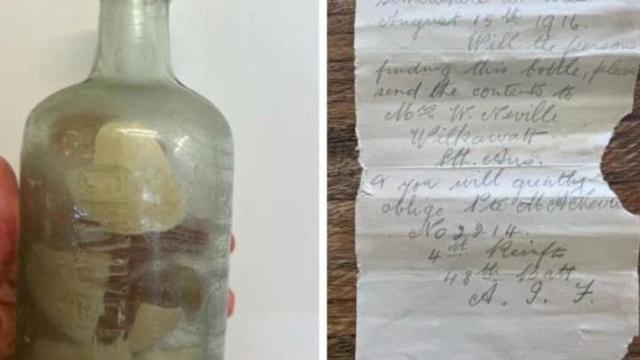 August 15th 1916.
Will the person
finding this bottle, please
send the contents to
Mrs W. Neville
Wilkawatt
Sth. Aus.
& you will greatly
oblige Pte M A Nevi
No 2214.
4th Reinf
48th Batt
A. I. F.